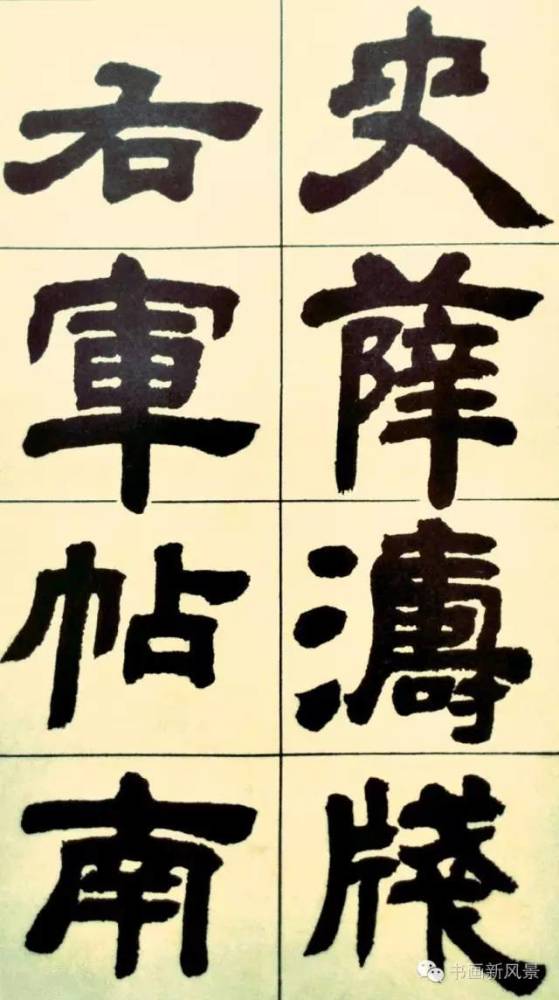 史薛濤牋
右軍帖南
书画新风景